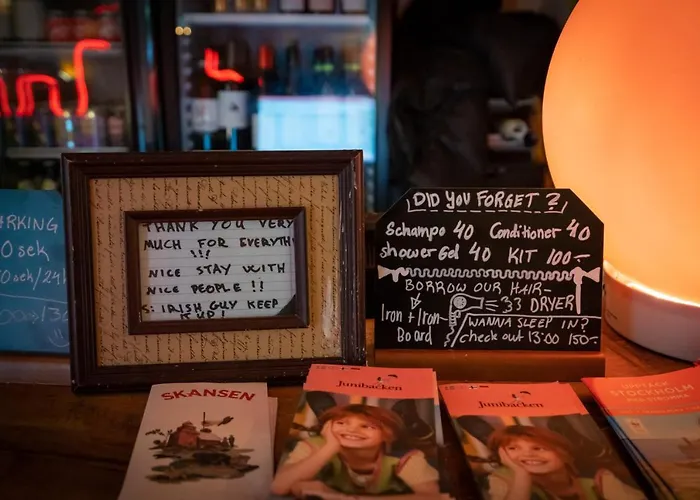 THANK YOU VERY
MUCH FOR EVERYTH
!!!
NICE STAY WITH
NICE PEOPLE !!
S: IRISH GUY KEEP
DID YOU FORGET ?
Schampo 40 Conditioner 40
shower Gel 40 KIT 100:-
BORROW OUR HAIR-
DRYER
Iron + Iron-
Board
WANNA SLEEP IN?
check out 13:00 150:-
RKING
0 sek
SKANSEN
Junibacken
Junibacken
STOCKHOLM